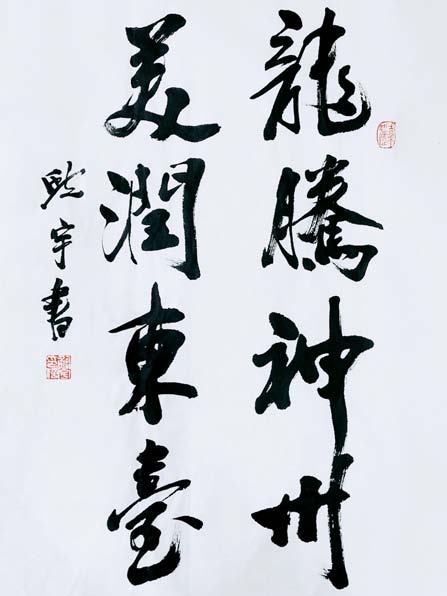 龍騰神州
美潤東臺
宇書